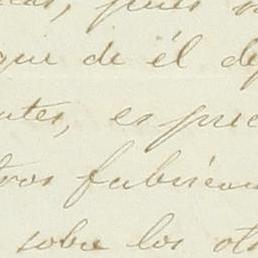 as, pues
que de él de
ntes, es prec
tros fabrican
sobre los ot